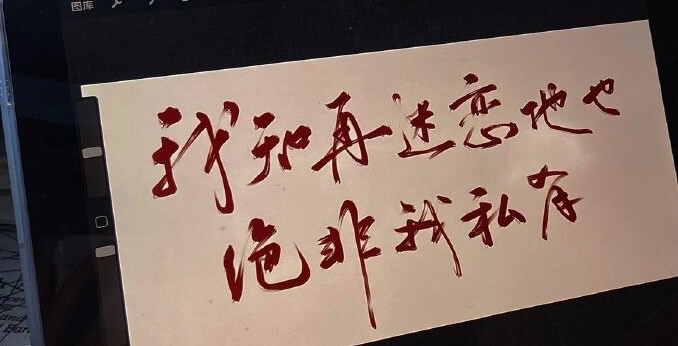 图库
我知再迷恋她也
绝非我私有